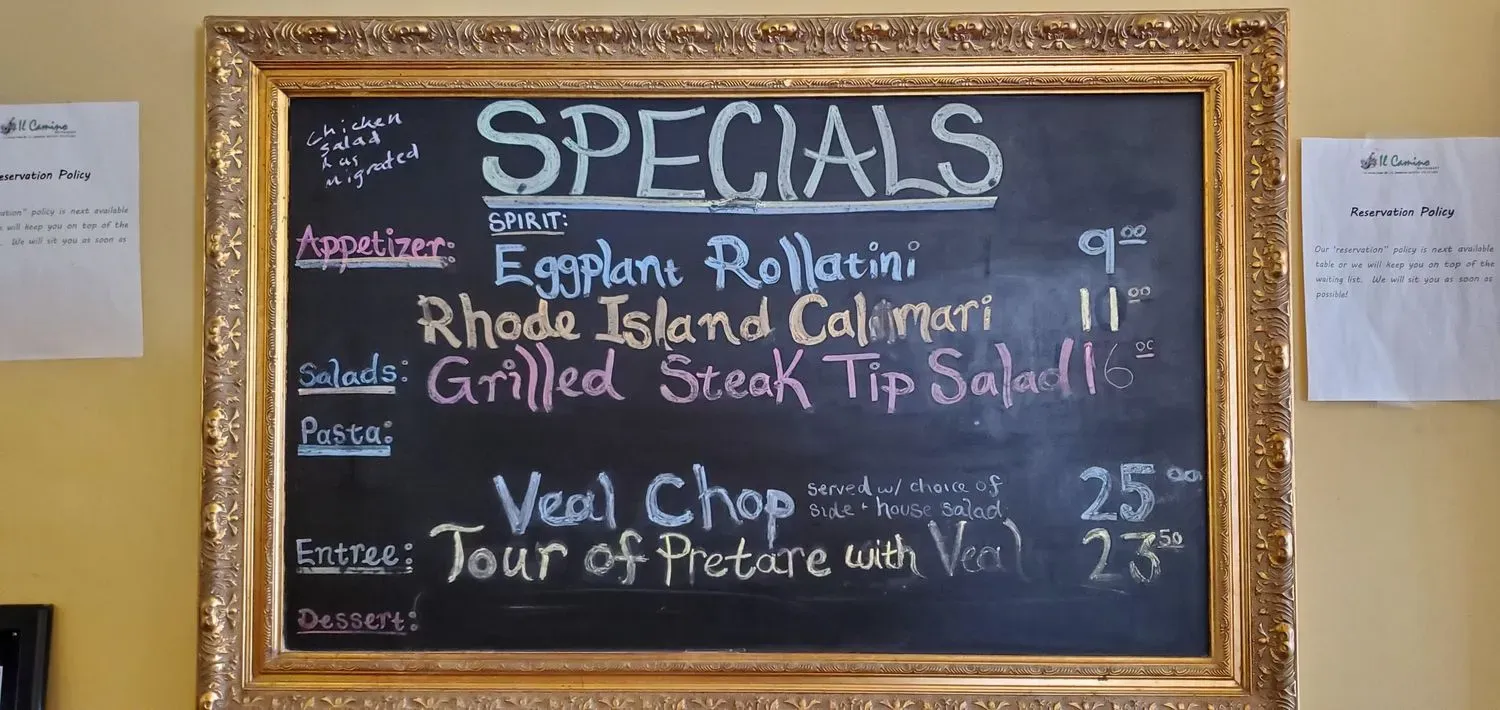 Chicken
salad
has
migrated
SPECIALS
SPIRIT:
Appetizer:
Eggplant Rollatini 9.00
Rhode Island Calamari 11.00
Salads: Grilled Steak Tip Salad 16.00
Pasta:
Veal Chop served w/ choice of
side + house salad 25.00
Entree: Tour of Pretare with Veal 23.50
Dessert:
Il Camino
eservation Policy
ation" policy is next available
will keep you on top of the
We will sit you as soon as
Il Camino
Reservation Policy
Our 'reservation" policy is next available
table or we will keep you on top of the
waiting list. We will sit you as soon as
possible!